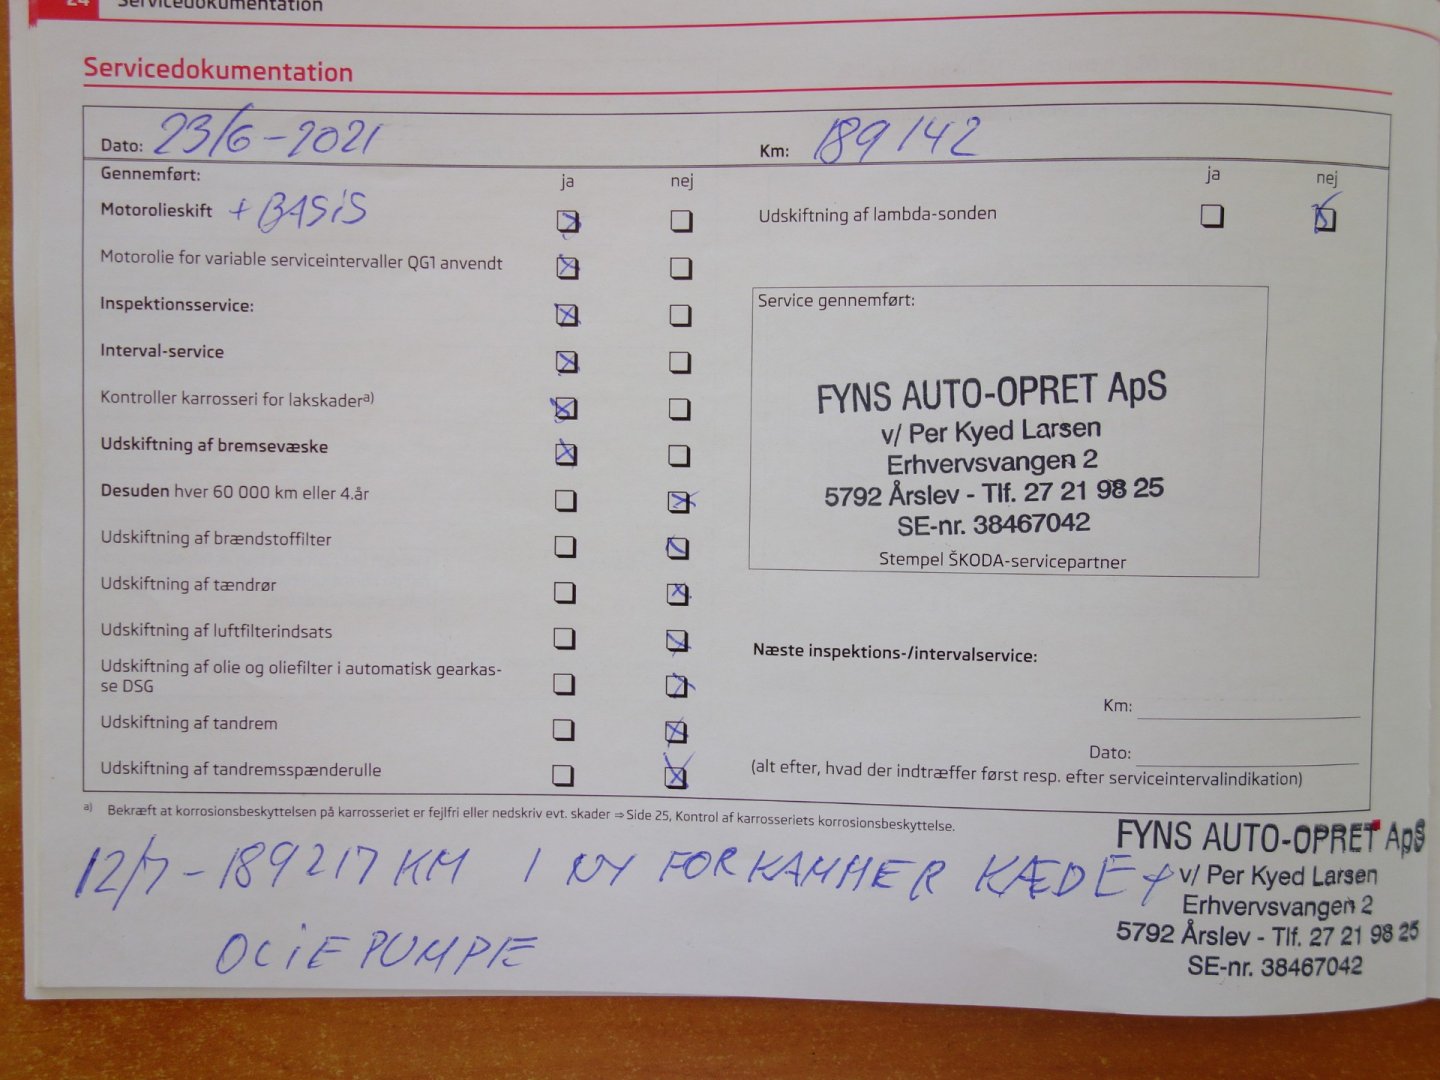 24 Servicedokumentation
Servicedokumentation
Dato: 23/6-2021 Km: 189142
Gennemført: ja nej
Motorolieskift + BASiS
Motorolie for variable serviceintervaller QG1 anvendt
Inspektionsservice:
Interval-service
Kontroller karrosseri for lakskader a)
Udskiftning af bremsevæske
Desuden hver 60 000 km eller 4.år
Udskiftning af brændstoffilter
Udskiftning af tændrør
Udskiftning af luftfilterindsats
Udskiftning af olie og oliefilter i automatisk gearkas-
se DSG
Udskiftning af tandrem
Udskiftning af tandremsspænderulle
ja nej
Udskiftning af lambda-sonden
Service gennemført:
FYNS AUTO-OPRET ApS
v/ Per Kyed Larsen
Erhvervsvangen 2
5792 Årslev - Tlf. 27 21 98 25
SE-nr. 38467042
Stempel ŠKODA-servicepartner
Næste inspektions-/intervalservice:
Km:
Dato:
(alt efter, hvad der indtræffer først resp. efter serviceintervalindikation)
a) Bekræft at korrosionsbeskyttelsen på karrosseriet er fejlfri eller nedskriv evt. skader ⇒ Side 25, Kontrol af karrosseriets korrosionsbeskyttelse.
12/7 - 189217 KM 1 NY FORKAMMER KÆDE +
OLiEPUMPE
FYNS AUTO-OPRET ApS
v/ Per Kyed Larsen
Erhvervsvangen 2
5792 Årslev - Tlf. 27 21 98 25
SE-nr. 38467042